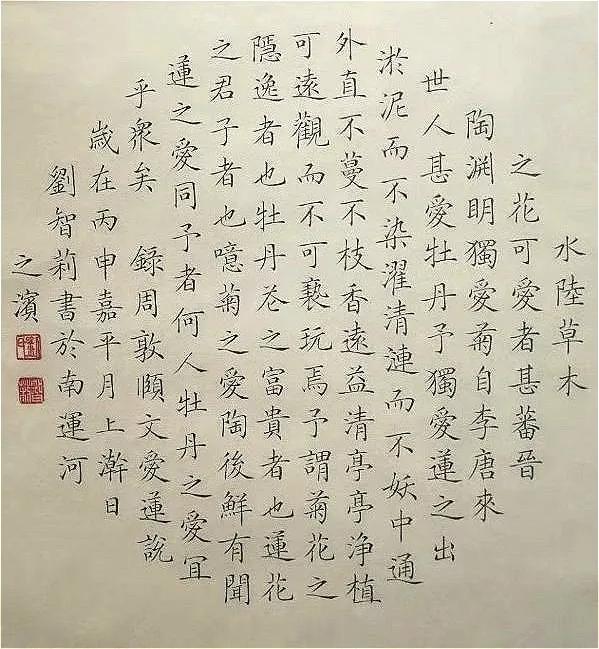 水陸草木
之花可愛者甚蕃晉
陶渊明獨愛菊自李唐來
世人甚愛牡丹予獨愛蓮之出
淤泥而不染濯清漣而不妖中通
外直不蔓不枝香遠益清亭亭浄植
可遠觀而不可褻玩焉予謂菊花之
隱逸者也牡丹花之富貴者也蓮花
之君子者也噫菊之愛陶後鮮有聞
蓮之愛同予者何人牡丹之愛宜
乎衆矣 録周敦頤文愛蓮説
歲在丙申嘉平月上澣日
劉智莉書於南運河
之濱